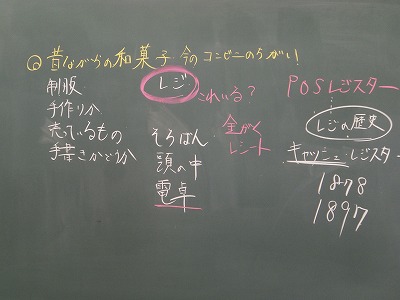 Q 昔ながらの和菓子 今のコンビニのちがい
制服
手作りか
売っているもの
手書きかどうか
レジ
これいる?
そろばん
頭の中
電卓
金がく
レシート
POSレジスター
レジの歴史
キャッシュ・レジスター
1878
1897